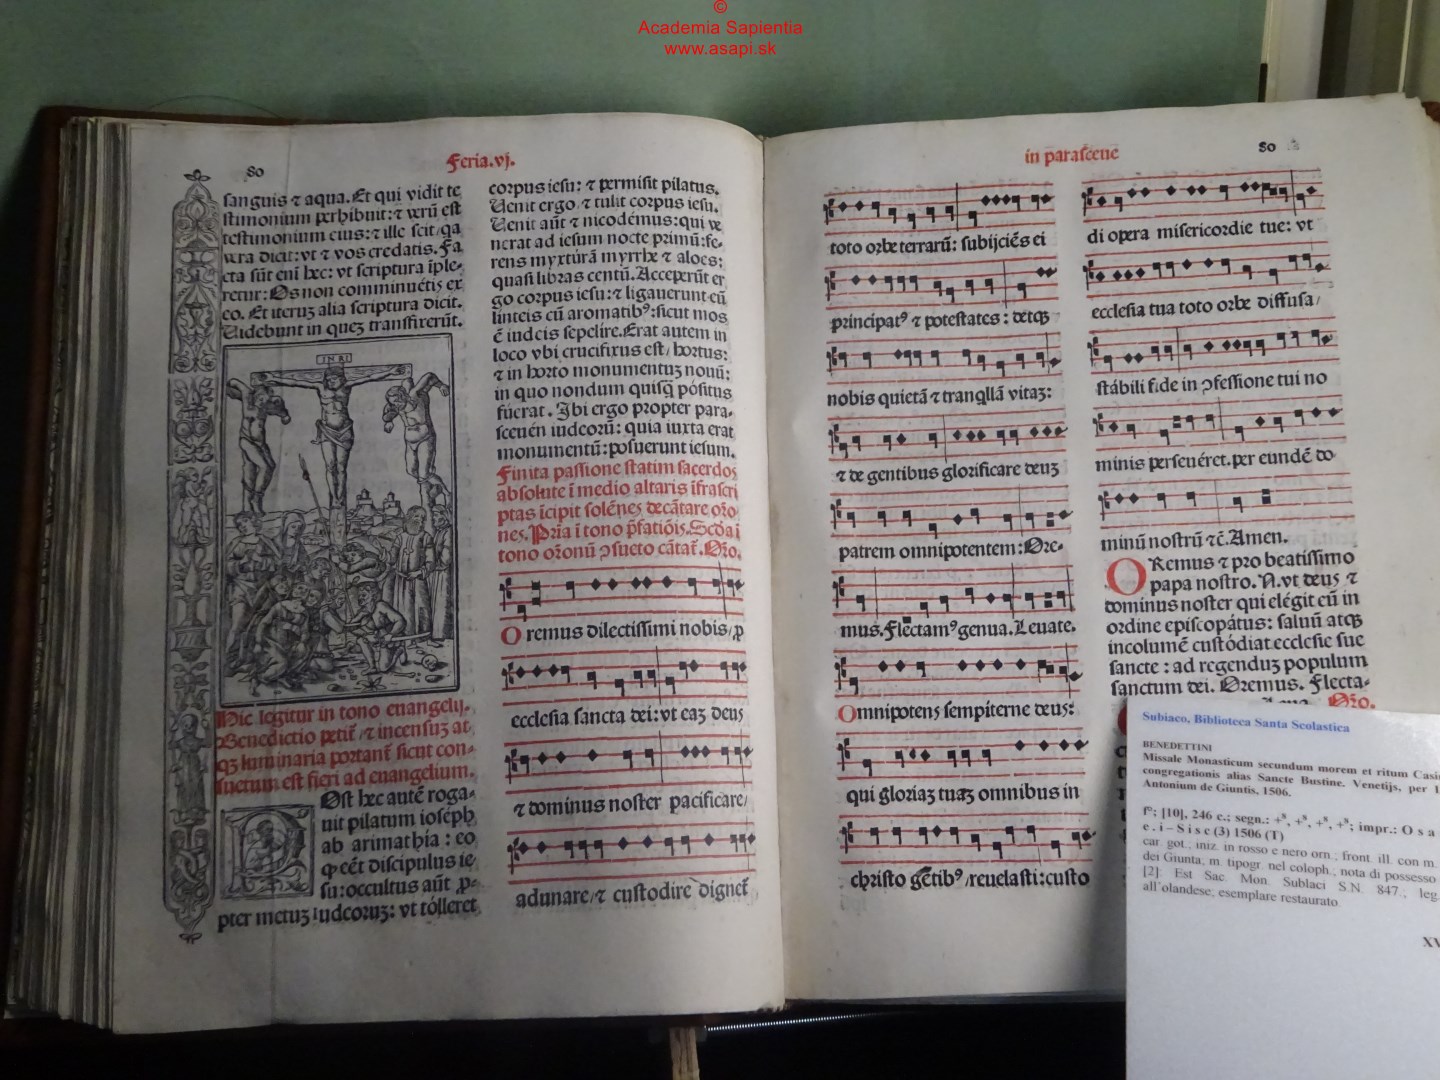 ©
Academia Sapientia
www.asapi.sk
80
Feria.vj.
sanguis ⁊ aqua. Et qui vidit te
stimonium perhibuit: ⁊ verū est
testimonium eius: ⁊ ille scit: qa
vera dicit: vt ⁊ vos credatis. Fa
cta sūt eni hec: vt scriptura iple-
retur: Os non comminuetis ex
eo. Et iteruz alia scriptura dicit.
Uidebunt in quez transfixerūt.
INRI
Hic legitur in tono euangelij.
Benedictio petit ⁊ incensuz at
qz luminaria portant sicut con-
suetum est fieri ad euangelium.
Post hec autē roga-
uit pilatum ioseph
ab arimathia: eo
q eēt discipulus ie
su: occultus aūt p-
pter metuz iudeoruz: vt tolleret
corpus iesu: ⁊ permisit pilatus.
Uenit ergo ⁊ tulit corpus iesu.
Uenit aūt ⁊ nicodémus: qui ve
nerat ad iesum nocte primū: fe-
rens myxtúrā myrrhe ⁊ aloes:
quasi libras centū. Acceperūt er
go corpus iesu: ⁊ ligauerunt eū
linteis cū aromatibꝰ: sicut mos
ē iudeis sepelire. Erat autem in
loco vbi crucifixus est, hortus:
⁊ in horto monumentuz nouū:
in quo nondum quisq pósitus
fúerat. Ibi ergo propter para-
sceuén iudeorū: quia iuxta erat
monumentū: posuerunt iesum.
Finita passione statim sacerdos
absolute ī medio altaris īfrascri
ptas īcipit solēnes decātare oro
nes. Pria ī tono pfatiōis. Scda ī
tono oronū ɔsueto cātat. Oro.
Oremus dilectissimi nobis, p
ecclesia sancta dei: vt eaz deus
⁊ dominus noster pacificare,
adunare, ⁊ custodire dignet
in parasceue
80
toto orbe terrarū: subijciēs ei
principatꝰ ⁊ potestates: detqz
nobis quietā ⁊ tranqllā vitaz:
⁊ de gentibus glorificare deuz
patrem omnipotentem: Ore-
mus. Flectamꝰ genua. Leuate.
Omnipotens sempiterne deus:
qui gloriaz tuaz omnibus in
christo gētibꝰ, reuelasti: custo
di opera misericordie tue: vt
ecclesia tua toto orbe diffusa,
stábili fide in ɔfessione tui no
minis perseuéret. per eundē do
minū nostrū ⁊c̄. Amen.
ORemus ⁊ pro beatissimo
papa nostro. N. vt deus ⁊
dominus noster qui elégit eū in
ordine episcopátus: saluū atqz
incolumē custódiat ecclesie sue
sancte: ad regenduz populum
sanctum dei. Oremus. Flecta-
Oro.
Subiaco, Biblioteca Santa Scolastica
BENEDETTINI
Missale Monasticum secundum morem et ritum Casi
congregationis alias Sancte Bustine. Venetijs, per
Antonium de Giuntis, 1506.
f°; [10], 246 c.; segn.: +⁸, +⁸, +⁸, +⁸; impr.: O s a
e . i – S i s c (3) 1506 (T)
car. got.; iniz. in rosso e nero orn.; front. ill. con m.
dei Giunta; m. tipogr. nel coloph.; nota di possesso
[2]: Est Sac. Mon. Sublaci S.N. 847.; leg.
all'olandese; esemplare restaurato.
XV